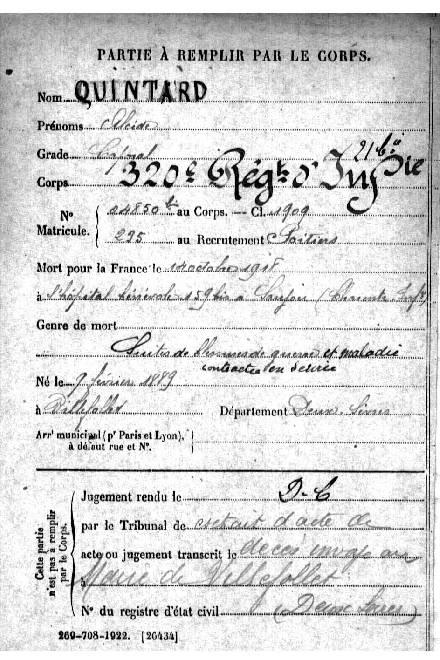 PARTIE À REMPLIR PAR LE CORPS.
Nom QUINTARD
Prénoms Alcide
Grade Caporal
Corps 320e Régt d'Infie
N° Matricule. 24850 au Corps. — Cl. 1909
295 au Recrutement Poitiers
Mort pour la France le octobre 1918
à l'hôpital bénévole 59 bis à Saujon (Charente Infre)
Genre de mort
Suites de blessures de guerre et maladie
contractée en service
Né le 9 février 1889
à Villefollet Département Deux-Sèvres
Arrt municipal (pr Paris et Lyon),
à défaut rue et N°.
Cette partie
n'est pas à remplir
par le Corps.
Jugement rendu le D.C
par le Tribunal de extrait d'acte de
acte ou jugement transcrit le décès envoyé au
Maire de Villefollet
N° du registre d'état civil (Deux Sèvres)
269-708-1922. [26434]